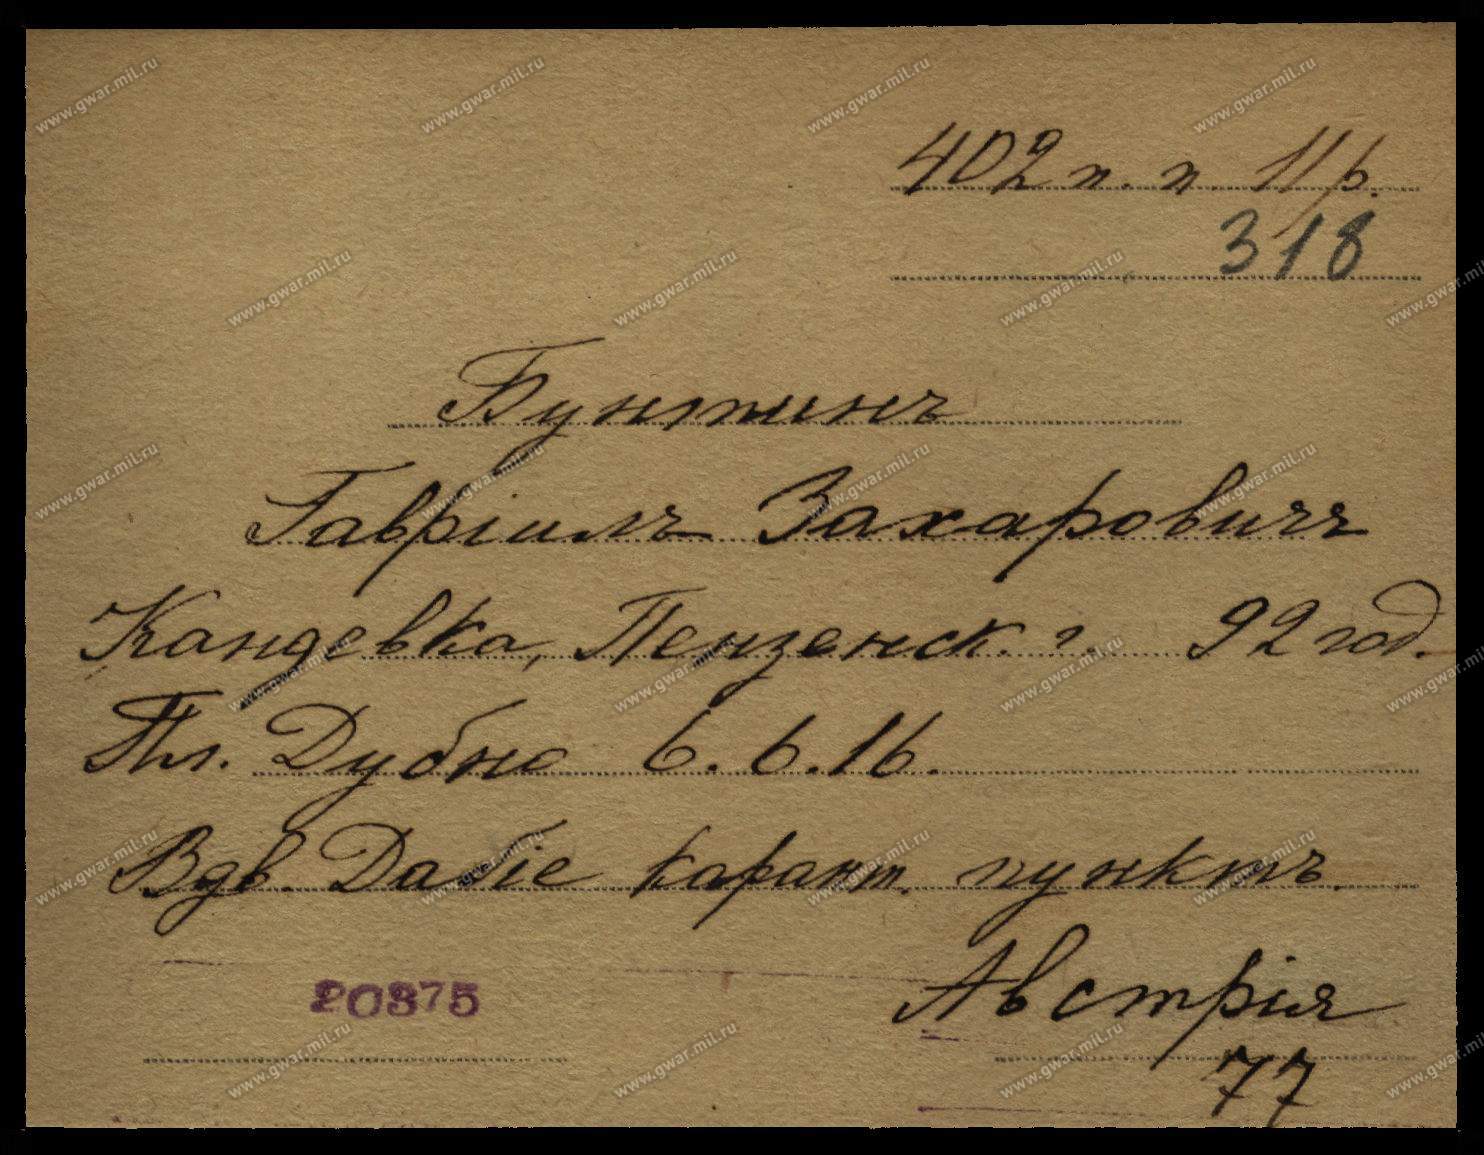 402 п. п. 11 р.
318
Бунтинъ
Гавріилъ Захаровичъ
Кандевка, Пензенск. г. 92 год.
Пл. Дубно 6.6.16.
Вдв. Дабіе карант. пунктъ.
20375
Австрія
77
www.gwar.mil.ru